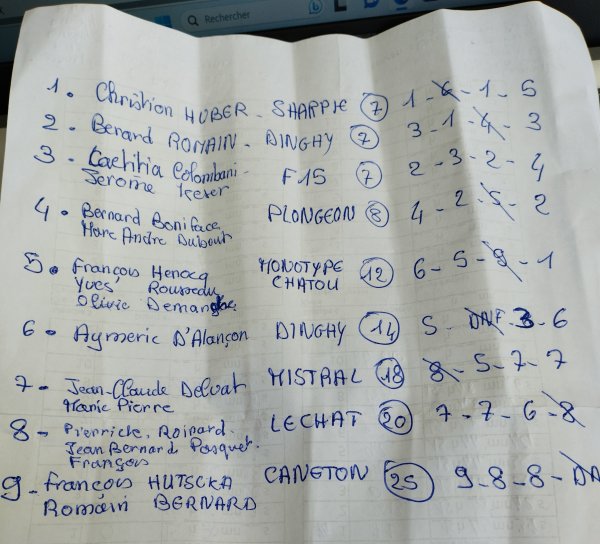 Rechercher
1. Christian HUBER - SHARPIE 7 1-6-1-5
2. Benard ROMAIN - DINGHY 7 3-1-4-3
3. Laetitia Colombani - F15 7 2-3-2-4
Jerome
4. Bernard Boniface PLONGEON 8 4-2-5-2
Marc Andre
5. François Henocq MONOTYPE 12 6-5-9-1
Yves Rousseau CHATOU
Olivie
6 - Aymeric D'Alançon DINGHY 14 5 - DNF - 3 - 6
7 - Jean-Claude Delvat MISTRAL 18 8-5-7-7
Marie Pierre
8 - Pierrick. Roinard. LECHAT 20 7-7-6-8
Jean Bernard Pasquet.
François
9 - François HUTSCKA CANETON 25 9-8-8-
Romain BERNARD